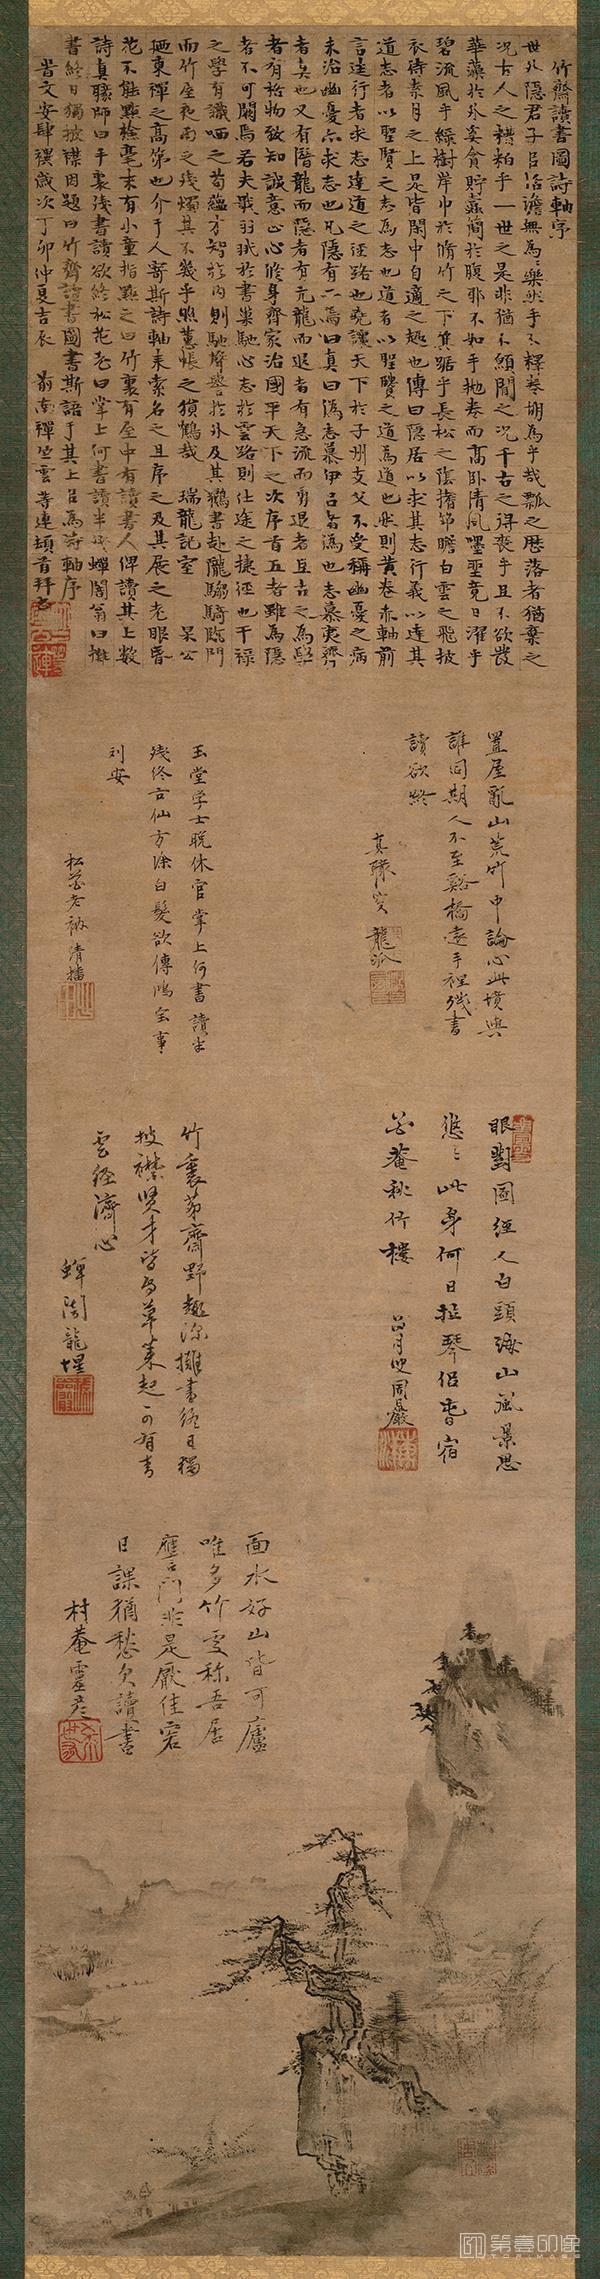 竹齋讀書圖詩軸序
世外隱君子自治澹無為之樂然手不釋卷胡為乎哉瓢之歷落者猶棄之
況古人之糟粕乎一世之是非猶不願聞之況千古之得喪乎且不欲發
華藻於外奚貪貯蠹簡於腹耶不如手抛卷而高卧清風曌
碧流風乎綠樹岸巾於脩竹之下箕踞乎長松之陰搘筇瞻白雲之飛披
衣待素月之上是皆閑中自適之趣也傳曰隱居以求其志行義以達其
道志者以聖賢之志為志也道者以聖賢之道為道也然則黃卷赤軸前
言往行者求志達道之徑路也堯讓天下於子州支父不受稱幽憂之病
未治幽憂亦求志也凡隱有六焉曰真曰偽志慕伊呂者偽也志慕夷齊
者真也又有潛龍而隱者有亢龍而退者有急流而勇退者且古之為學
者有格物致知誠意正心修身齊家治國平天下之次序首五者雖為隱
者不可闕焉若夫戢羽翮於書巢馳心志於雲路則仕途之捷徑也干祿
之學有識哂之苟蘊方智於內則馳聲譽於外及其鶴書赴隴騶騎臨門
而竹屋夜雨之殘燈其不幾乎照蕙帳之猿鶴哉 瑞龍記室 杲公
東禪之高弟也介于人寄斯詩軸來索名之且序之及其展之老眼昏
花不能點檢毫末有小童指點之曰竹裏有屋中有讀書人俾讀其上數
詩真贜師曰手裏殘書讀欲終松花老曰掌上何書讀半殘蟬閣翁曰擁
書終日獨披襟因題曰竹齋讀書圖書斯語于其上以為詩軸序
旹文安肆禩歲次丁卯仲夏吉辰 前南禪竺雲等連頓首拜書
置屋亂山荒竹中論心此境與
誰同期人不至谿橋遠手裡殘書
讀欲終
玉堂学士晚休官掌上何書讀半
殘終古仙方涂白髮欲傳鴻宝事
刘安
松花老衲清播
眼對圖經人白頭海山風景思
悠々此身何日拉琴侶
花菴秋竹樓
竹裏茅齋野趣深擁書終日獨
披襟賢才皆為草莱起可有青
雲経濟心
蟬閣龍惺
面水好山皆可廬
唯多竹處称吾居
應門非是厭佳客
日課猶愁欠讀書
村菴霊彦
第壹印像
TOPIMAGE